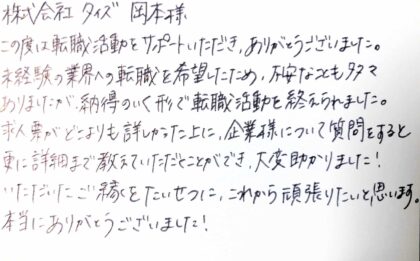 株式会社 タイズ 岡本様
この度は転職活動をサポートいただき、ありがとうございました。
未経験の業界への転職を希望したため、不安なことも多々
ありましたが、納得のいく形で転職活動を終えられました。
求人票がどこよりも詳しかった上に、企業様について質問をすると
更に詳細まで教えていただくことができ、大変助かりました!
いただいたご縁をたいせつに、これから頑張りたいと思います。
本当にありがとうございました!